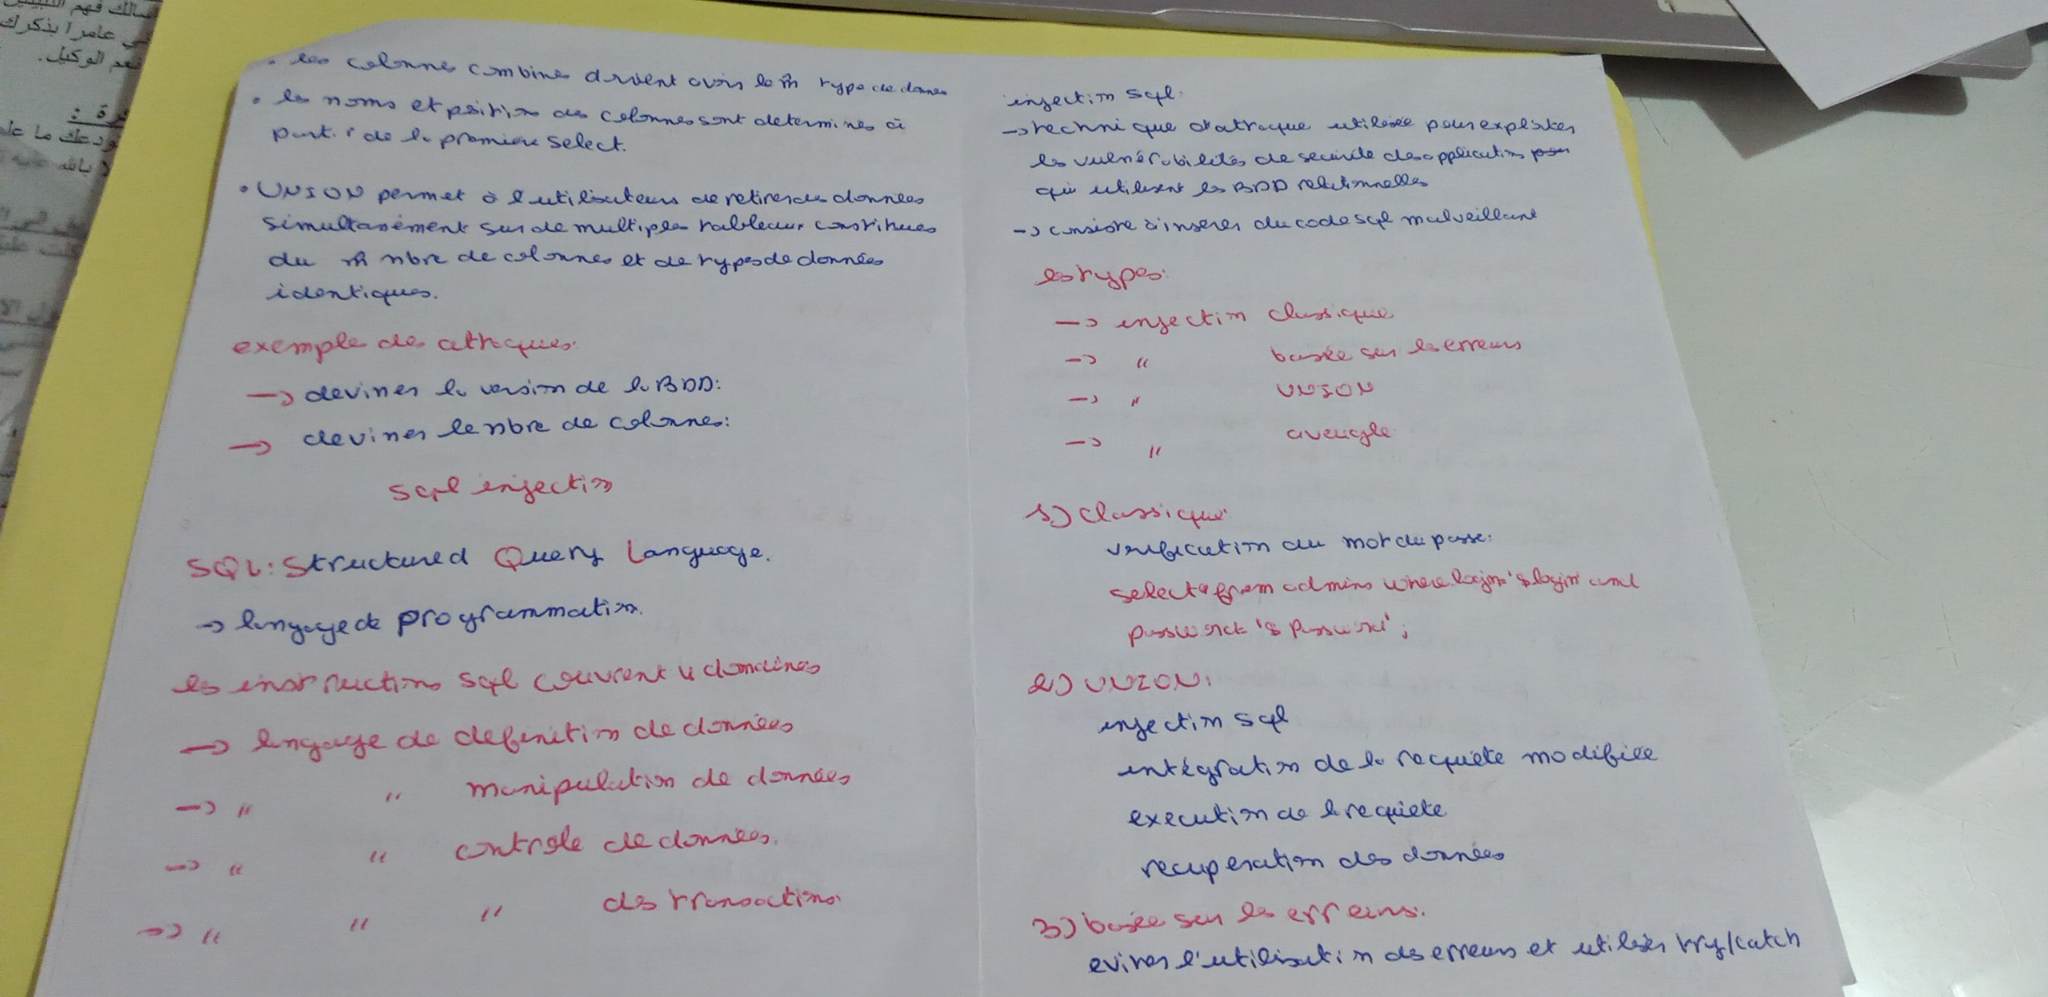 • les colonnes combines drvient avoir le m̂ type de donnes
• les noms et position des colonnes sont determines à
partir de la premiere select.
• UNION permet à l'utilisateurs de retirer des données
simultanément sur de multiples tableaux constitues
du m̂ nbre de colonnes et de types de données
identiques.
exemple des attaques:
→ deviner la version de la BDD:
→ deviner le nbre de colonnes:
sql injection
SQL: Structured Query Language.
→ langage de programmation.
les instructions sql couvrent 4 domaines
→ langage de definition de données
→ " " manipulation de données
→ " " controle de données.
→ " " " des transactions.
injection sql:
→ technique d'attaque utilisée pour exploiter
les vulnérabilités de securite des application
qui utilisent les BDD relationnelles
→ consiste à inserer du code sql malveillant
les types:
→ injection classique
→ " basée sur les erreurs
→ " UNION
→ " aveugle
1) classique:
verification du mot du passe:
select * from admins where login= '$login' and
password= '$ password';
2) UNION:
injection sql
intégration de la requête modifiée
execution de la requête
recuperation des données
3) basée sur les erreurs.
eviter l'utilisation des erreurs et utiliser try/catch
عامرا بذكرك
نعم الوكيل.